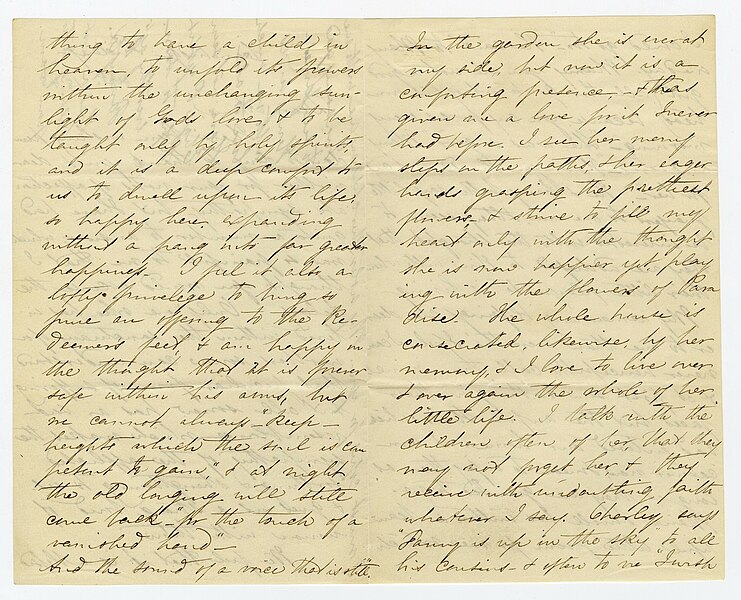 thing to have a child in
heaven, to unfold its powers
within the unchanging sun-
light of Gods love, & to be
taught only by holy spirits,
and it is a deep comfort to
us to dwell upon its life,
so happy here, expanding
without a pang into far greater
happiness. I feel it also a
lofty privilege to bring so
pure an offering to the Re-
deemers feet, & am happy in
the thought that it is forever
safe within his arms, but
we cannot always "keep
heights which the soul is com
petent to gain," & at night
the old longing will still
come back "for the touch of a
vanished hand"
And the sound of a voice that is still".
In the garden she is ever at
my side, but now it is a
comforting presence, & has
given me a love for it I never
had before. I see her merry
steps in the paths, & her eager
hands grasping the prettiest
flowers, & strive to fill my
heart only with the thought
she is now happier yet, play
ing with the flowers of Para
dise. The whole house is
consecrated, likewise, by her
memory, & I love to live over
& over again the whole of her
little life. I talk with the
children often of her, that they
may not forget her & they
receive with undoubting faith
whatever I say. Charley says
"Fanny is up in the sky" to all
his cousins & often to me "I wish